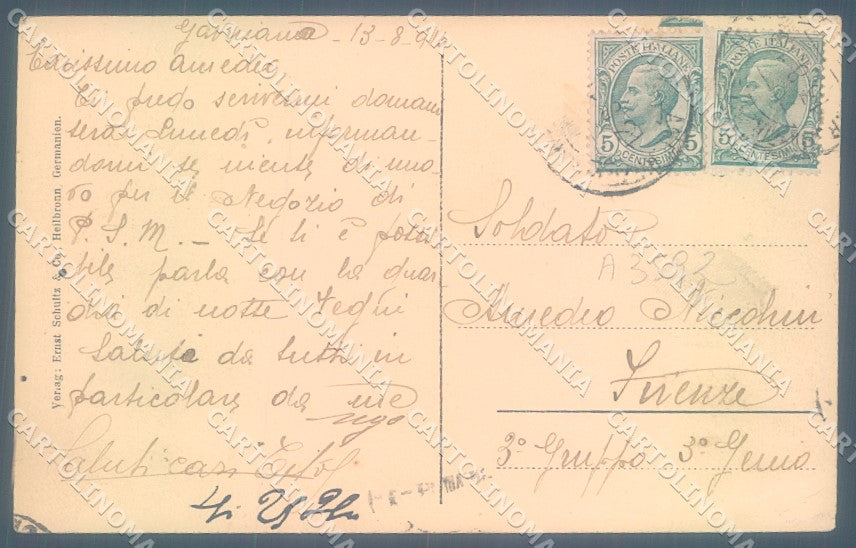 Gavinana - 13-8-9
Carissimo Amedeo
Ti prego scrivermi domani
sera Lunedì, informan-
domi se niente di nuo-
vo per il Negozio di
P. S. M. - Se ti è possi
bile parla con la guar
dia di notte
Saluti da tutti in
particolare da me
Ugo
Saluti cari
POSTE ITALIANE
5 CENTESIMI 5
POSTE ITALIANE
5 CENTESIMI 5
Soldato
A 3382
Amedeo Niccolini
Firenze
3° Gruppo 3° Genio
Verlag: Ernst Schultz & Co. Heilbronn, Germanien.
CARTOLINOMANIA